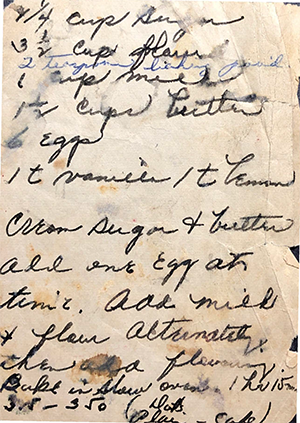 2 1/4 cup Sugar
3 1/2 cup flour
2 teaspoons baking powd.
1 cup milk
1 1/2 cups butter
6 Eggs
1 t vanilla 1 t lemon
Cream Sugar & butter
Add one Egg at a
time. Add milk
& flour Alternately
then add flavoring
Bake in slow oven. 1 hr 15 m
325 - 350 (
Cake)